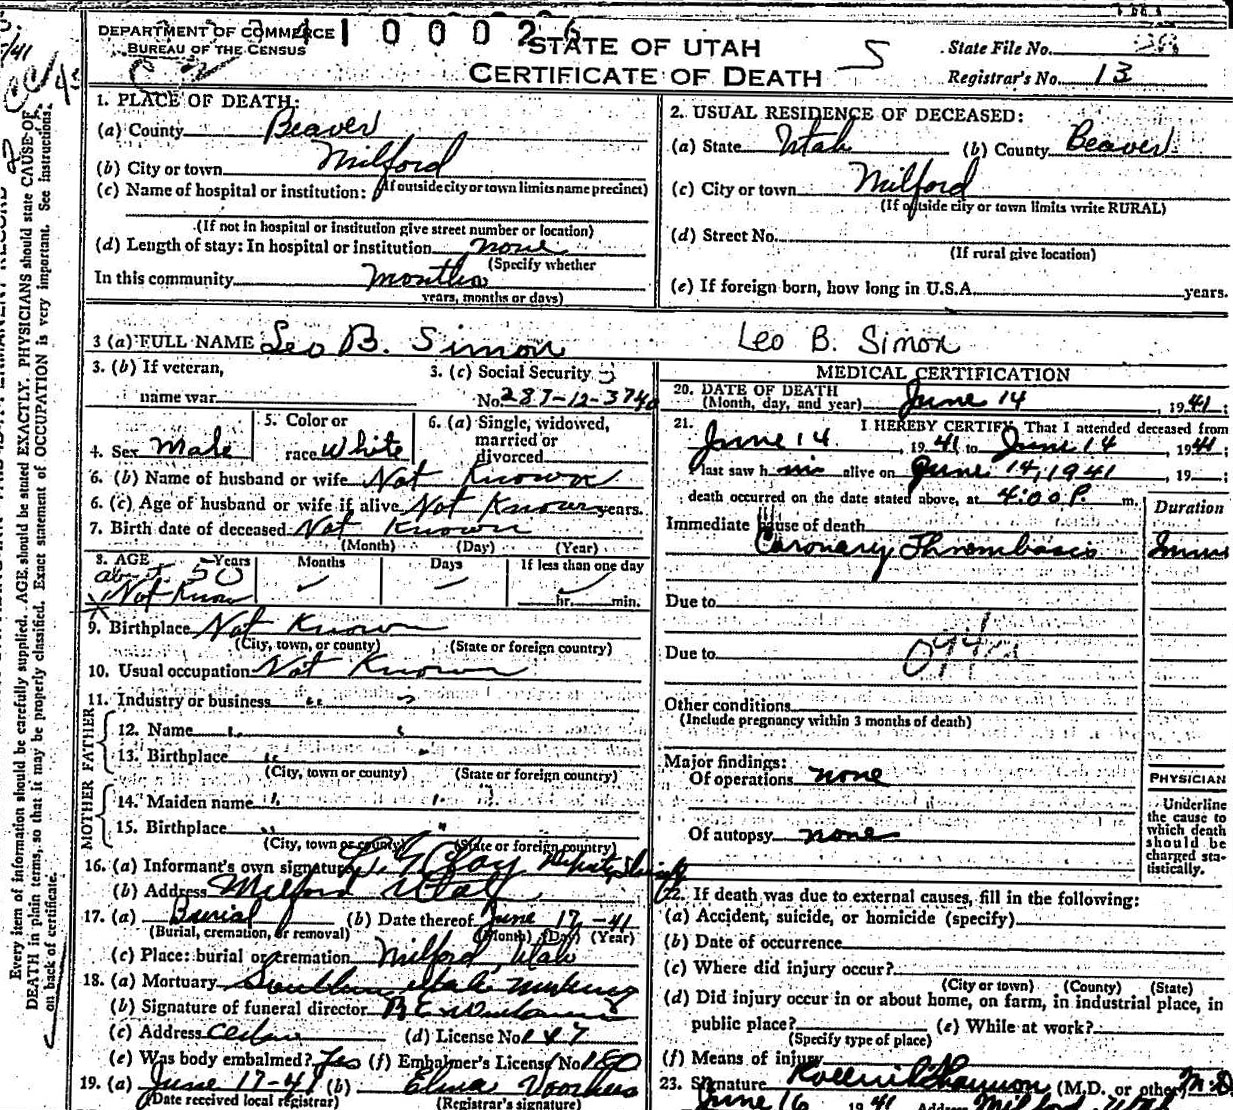 DEPARTMENT OF COMMERCE
BUREAU OF THE CENSUS
1 0 0 0 2 6
STATE OF UTAH
CERTIFICATE OF DEATH
S
State File No.
Registrar's No. 13
Every item of information should be carefully supplied. AGE should be stated EXACTLY. PHYSICIANS should state CAUSE OF
DEATH in plain terms, so that it may be properly classified. Exact statement of OCCUPATION is very important. See instructions
on back of certificate.
1. PLACE OF DEATH:
(a) County Beaver
(b) City or town Milford
(If outside city or town limits name precinct)
(c) Name of hospital or institution:
(If not in hospital or institution give street number or location)
(d) Length of stay: In hospital or institution none
(Specify whether
In this community Months
years, months or days)
2. USUAL RESIDENCE OF DECEASED:
(a) State Utah (b) County Beaver
(c) City or town Milford
(If outside city or town limits write RURAL)
(d) Street No.
(If rural give location)
(e) If foreign born, how long in U.S.A. years.
3 (a) FULL NAME Leo B. Simon Leo B. Simon
3. (b) If veteran,
name war
3. (c) Social Security
No. 287-12-3740
4. Sex Male
5. Color or
race White
6. (a) Single, widowed,
married or
divorced
6. (b) Name of husband or wife Not Known
6. (c) Age of husband or wife if alive Not Known years.
7. Birth date of deceased Not Known
(Month) (Day) (Year)
8. AGE Years Months Days If less than one day
about 50
Not Know
hr. min.
9. Birthplace Not Known
(City, town, or county) (State or foreign country)
10. Usual occupation Not Known
11. Industry or business " "
FATHER
12. Name " "
13. Birthplace " "
(City, town or county) (State or foreign country)
MOTHER
14. Maiden name " "
15. Birthplace " "
(City, town or county) (State or foreign country)
16. (a) Informant's own signature Deputy Sheriff
(b) Address Milford Utah
17. (a) Burial (b) Date thereof June 17-41
(Burial, cremation, or removal) (Month) (Day) (Year)
(c) Place: burial or cremation Milford, Utah
18. (a) Mortuary Southern Utah Mortuary
(b) Signature of funeral director
(c) Address Cedar (d) License No. 147
(e) Was body embalmed? Yes (f) Embalmer's License No. 180
19. (a) June 17-41 (b) Elma Voorhees
(Date received local registrar) (Registrar's signature)
MEDICAL CERTIFICATION
20. DATE OF DEATH
(Month, day, and year) June 14, 1941;
21. I HEREBY CERTIFY, That I attended deceased from
June 14, 1941 to June 14, 1941;
last saw him alive on June 14, 1941, 19 ;
death occurred on the date stated above, at 4:00 P. m.
Duration
Immediate cause of death
Coronary Thrombosis
Due to
Due to
Other conditions
(Include pregnancy within 3 months of death)
Major findings:
Of operations none
Of autopsy none
PHYSICIAN
Underline
the cause to
which death
should be
charged sta-
tistically.
22. If death was due to external causes, fill in the following:
(a) Accident, suicide, or homicide (specify)
(b) Date of occurrence
(c) Where did injury occur?
(City or town) (County) (State)
(d) Did injury occur in or about home, on farm, in industrial place, in
public place? (e) While at work?
(Specify type of place)
(f) Means of injury
23. Signature (M.D. or other) M.D.
June 16 1941 Address Milford Utah